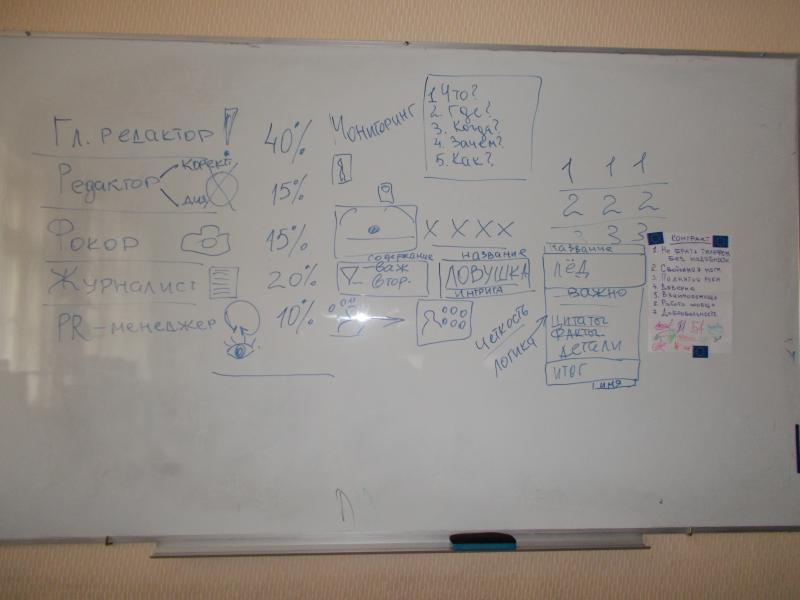 Гл. редактор! 40%
Мониторинг
1 Что?
2. Где?
3. Когда?
4. Зачем?
5. Как?
Редактор корект
диз
15%
Фокор 15%
Журналист 20%
PR-менеджер 10%
X X X X
содержание
ваз
втор.
название
ЛОВУШКА
интрига
Четкость
логика
1 1 1
2 2 2
3 3
название
ЛЁД
важно
цитаты
факты
детали
итог
имя
КОНТРАКТ
1. Не брать телефон
без надобности
3. Поднятая рука
4. Доверие
5. Взаимопомощь